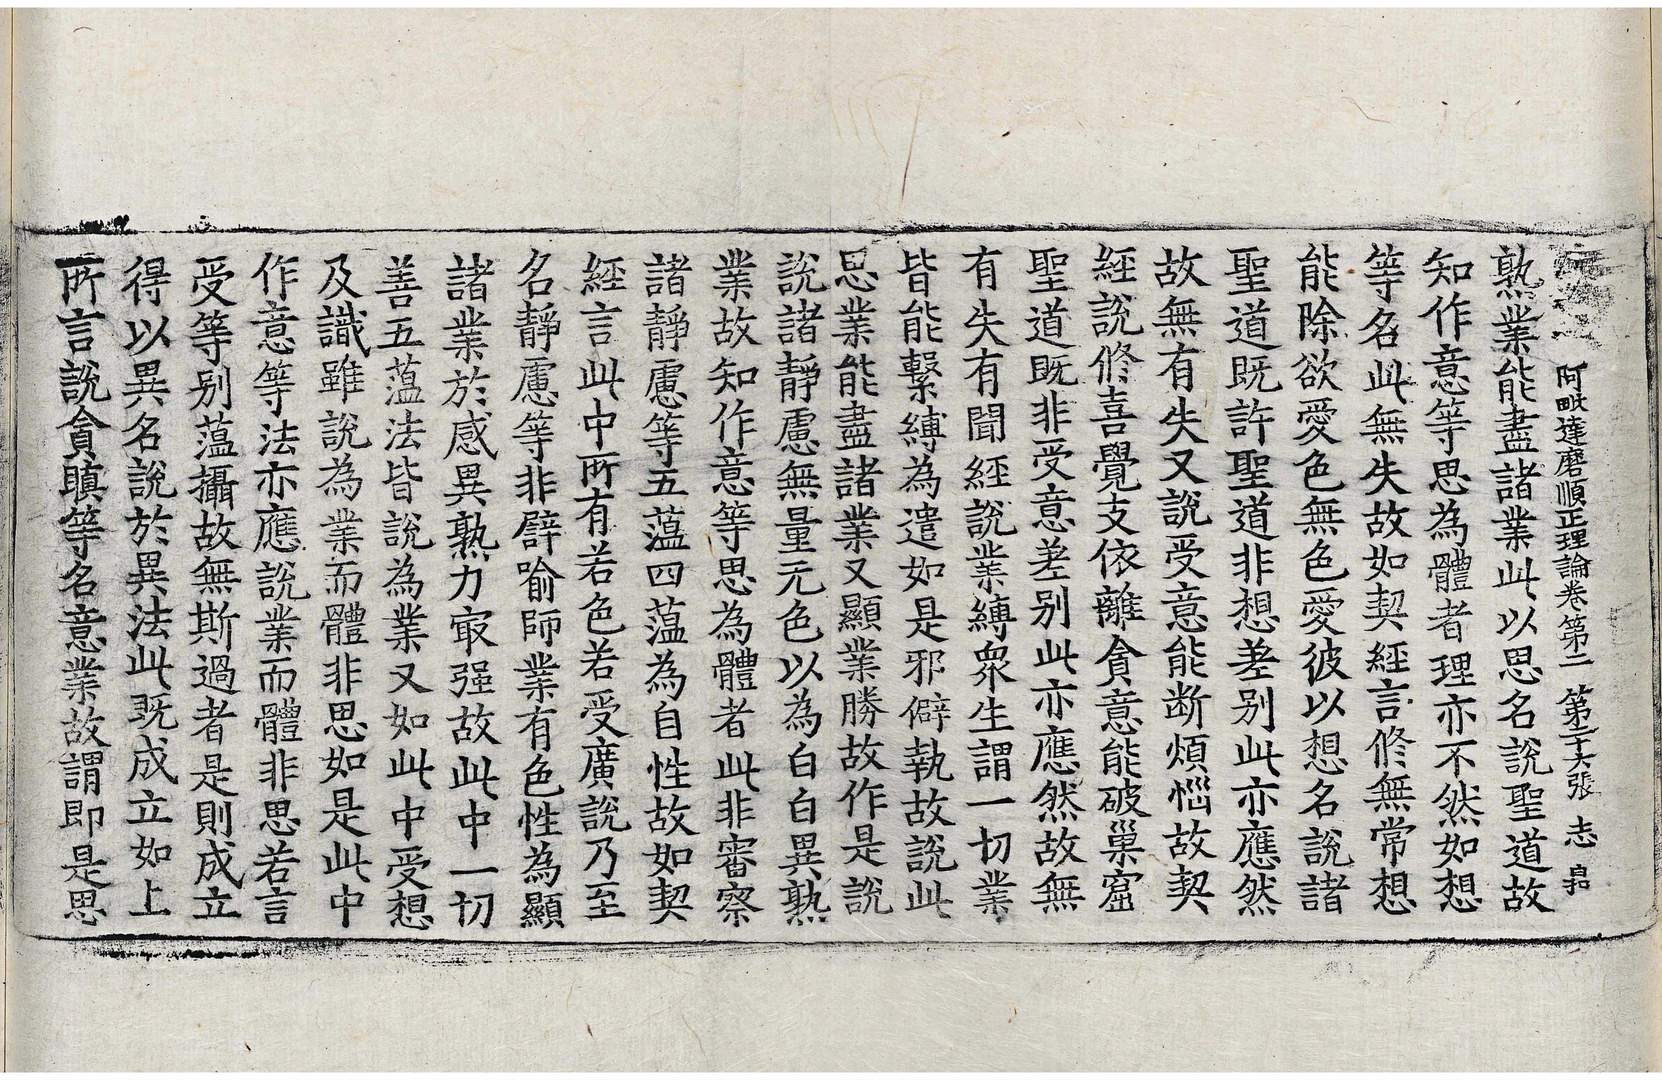 阿毗達磨順正理論卷第二 第二十六張 志
熟業能盡諸業此以思名說聖道故
知作意等思為體者理亦不然如想
等名此無失故如契經言修無常想
能除欲愛色無色愛彼以想名說諸
聖道既許聖道非想差别此亦應然
故無有失又說受意能断煩惱故契
經說修喜覺支依離貪意能破巢窟
聖道既非受意差别此亦應然故無
有失有聞經說業縛眾生謂一切業
皆能繫縛為遣如是邪僻執故說此
思業能盡諸業又顯業勝故作是說
說諸靜慮無量无色以為白白異熟
業故知作意等思為體者此非審察
諸靜慮等五薀四薀為自性故如契
經言此中所有若色若受廣說乃至
名靜慮等非譬喻師業有色性為顯
諸業於感異熟力㝡强故此中一切
善五薀法皆說為業又如此中受想
及識雖說為業而體非思如是此中
作意等法亦應說業而體非思若言
受等别薀攝故無斯過者是則成立
得以異名說於異法此既成立如上
所言說貪瞋等名意業故謂即是思